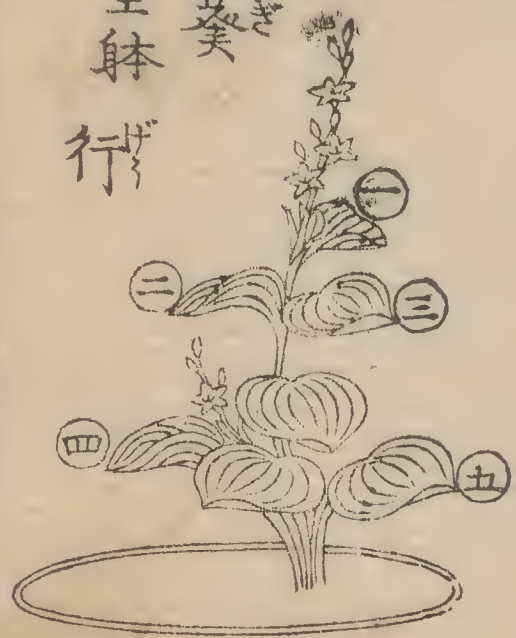 葵
ぎ
躰
行
げう
一
二
三
四
五